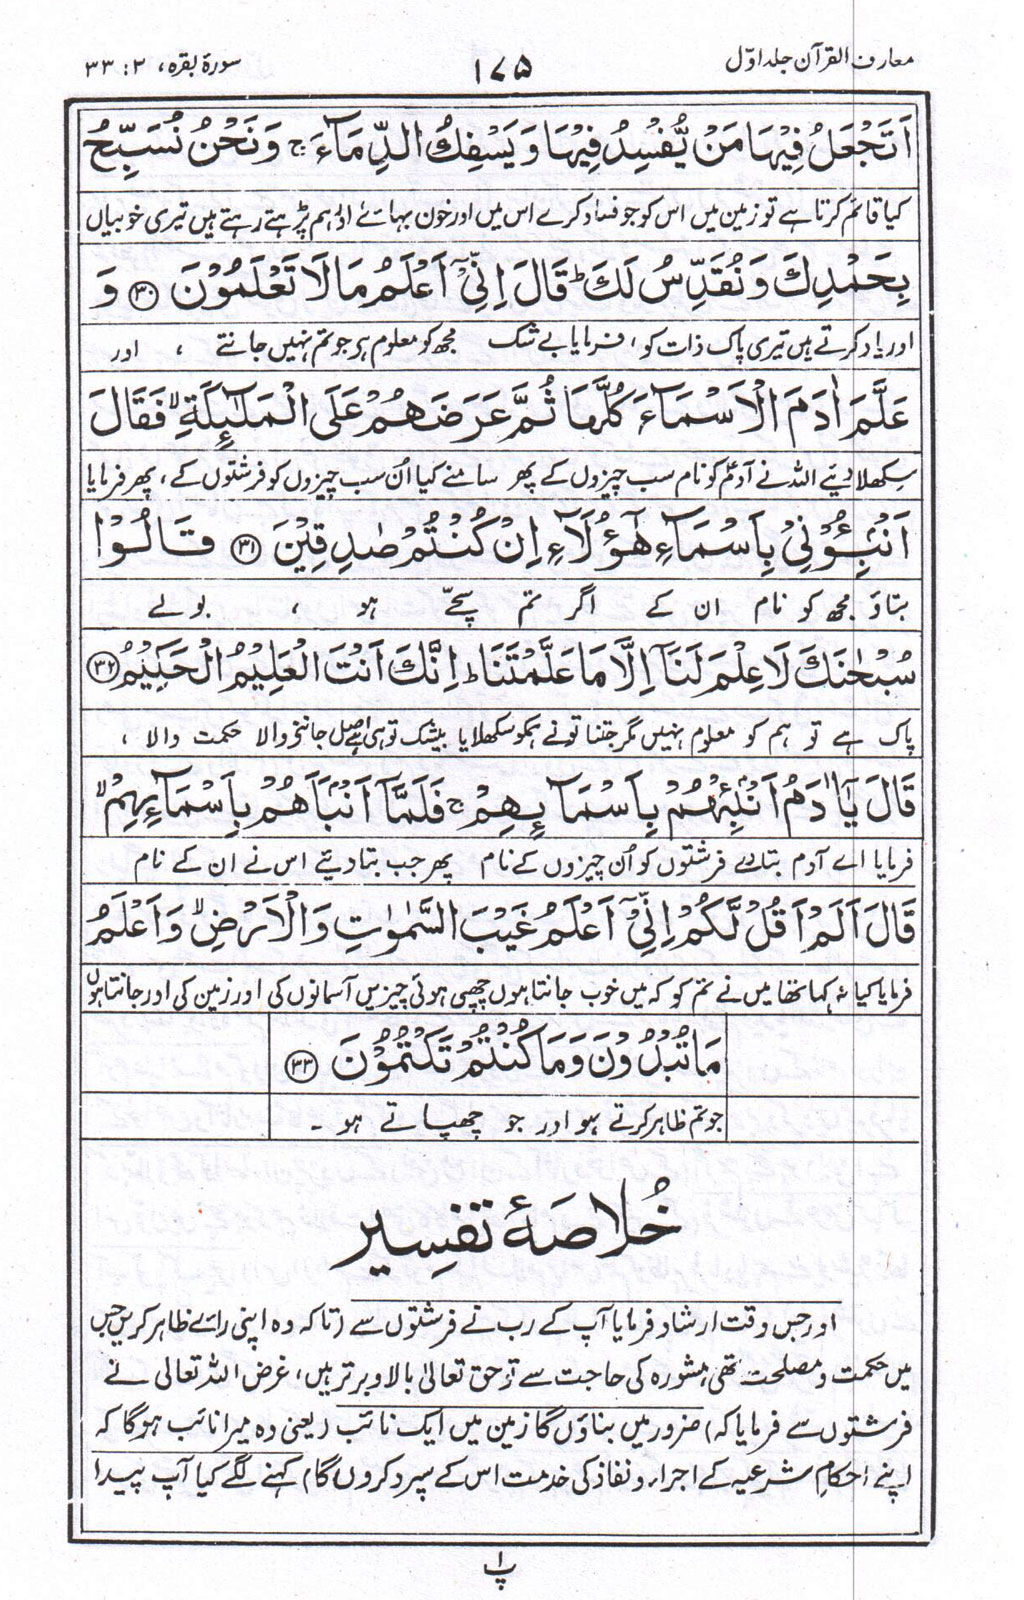 معارف القرآن جلد اوّل
۱۷۵
سورۂ بقرہ، ۲ : ۳۳
اَتَجْعَلُ فِيْهَا مَنْ يُّفْسِدُ فِيْهَا وَيَسْفِكُ الدِّمَآءَ ۚ وَنَحْنُ نُسَبِّحُ
کیا قائم کرتا ہے تو زمین میں اس کو جو فساد کرے اس میں اور خون بہائے اور ہم پڑہتے رہتے ہیں تیری خوبیاں
بِحَمْدِكَ وَنُقَدِّسُ لَكَ ۭ قَالَ اِنِّىْٓ اَعْلَمُ مَا لَا تَعْلَمُوْنَ ﴿۳۰﴾ وَ
اور یاد کرتے ہیں تیری پاک ذات کو، فرمایا بے شک مجھ کو معلوم ہر جو تم نہیں جانتے ، اور
عَلَّمَ اٰدَمَ الْاَسْمَآءَ كُلَّهَا ثُمَّ عَرَضَهُمْ عَلَى الْمَلٰٓئِكَةِ ۙ فَقَالَ
سکھلا دیئے اللہ نے آدمؑ کو نام سب چیزوں کے پھر سامنے کیا اُن سب چیزوں کو فرشتوں کے، پھر فرمایا
اَنْۢبِـُٔوْنِىْ بِاَسْمَآءِ هٰٓؤُلَآءِ اِنْ كُنْتُمْ صٰدِقِيْنَ ﴿۳۱﴾ قَالُوْا
بتاؤ مجھ کو نام ان کے اگر تم سچّے ہو ، بولے
سُبْحٰنَكَ لَا عِلْمَ لَنَآ اِلَّا مَا عَلَّمْتَنَا ۭ اِنَّكَ اَنْتَ الْعَلِيْمُ الْحَكِيْمُ ﴿۳۲﴾
پاک ہے تو ہم کو معلوم نہیں مگر جتنا تو نے ہمکو سکھلایا بیشک تو ہی ہے اصل جاننے والا حکمت والا ،
قَالَ يٰٓاٰدَمُ اَنْۢبِئْهُمْ بِاَسْمَآئِهِمْ ۚ فَلَمَّآ اَنْۢبَاَهُمْ بِاَسْمَآئِهِمْ ۙ
فرمایا اے آدم بتا دے فرشتوں کو اُن چیزوں کے نام پھر جب بتا دیئے اس نے ان کے نام
قَالَ اَلَمْ اَقُلْ لَّكُمْ اِنِّىْٓ اَعْلَمُ غَيْبَ السَّمٰوٰتِ وَالْاَرْضِ ۙ وَاَعْلَمُ
فرمایا کیا نہ کہا تھا میں نے تم کو کہ میں خوب جانتا ہوں چھپی ہوئی چیزیں آسمانوں کی اور زمین کی اور جانتا ہوں
مَا تُبْدُوْنَ وَمَا كُنْتُمْ تَكْتُمُوْنَ ﴿۳۳﴾
جو تم ظاہر کرتے ہو اور جو چھپاتے ہو ۔
خُلاصۂ تفسیر
اور جس وقت ارشاد فرمایا آپ کے رب نے فرشتوں سے (تاکہ وہ اپنی رائے ظاہر کریں جس
میں حکمت و مصلحت تھی، مشورہ کی حاجت سے تو حق تعالیٰ بالا و برتر ہیں، غرض اللہ تعالیٰ نے
فرشتوں سے فرمایا کہ) ضرور میں بناؤں گا زمین میں ایک نائب (یعنی وہ میرا نائب ہوگا کہ
اپنے احکامِ شرعیہ کے اجراء و نفاذ کی خدمت اس کے سپرد کروں گا) کہنے لگے کیا آپ پیدا
پ۱